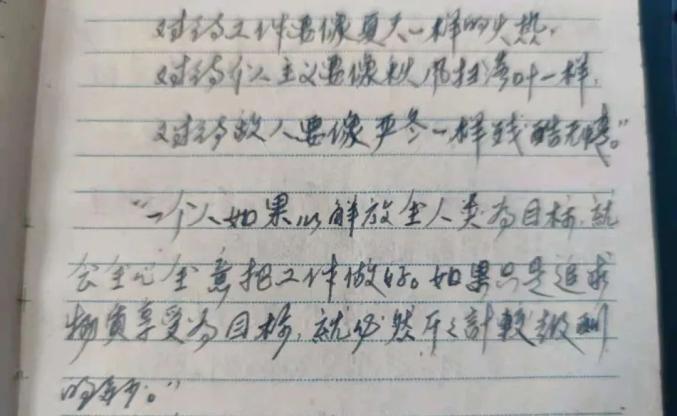 对待工作要像夏天一样的火热,
对待个人主义要像秋风扫落叶一样,
对待敌人要像严冬一样残酷无情。”
“一个人如果以解放全人类为目标,就
会全心全意把工作做好。如果只是追求
物质享受为目标,就必然斤斤計較级别
的